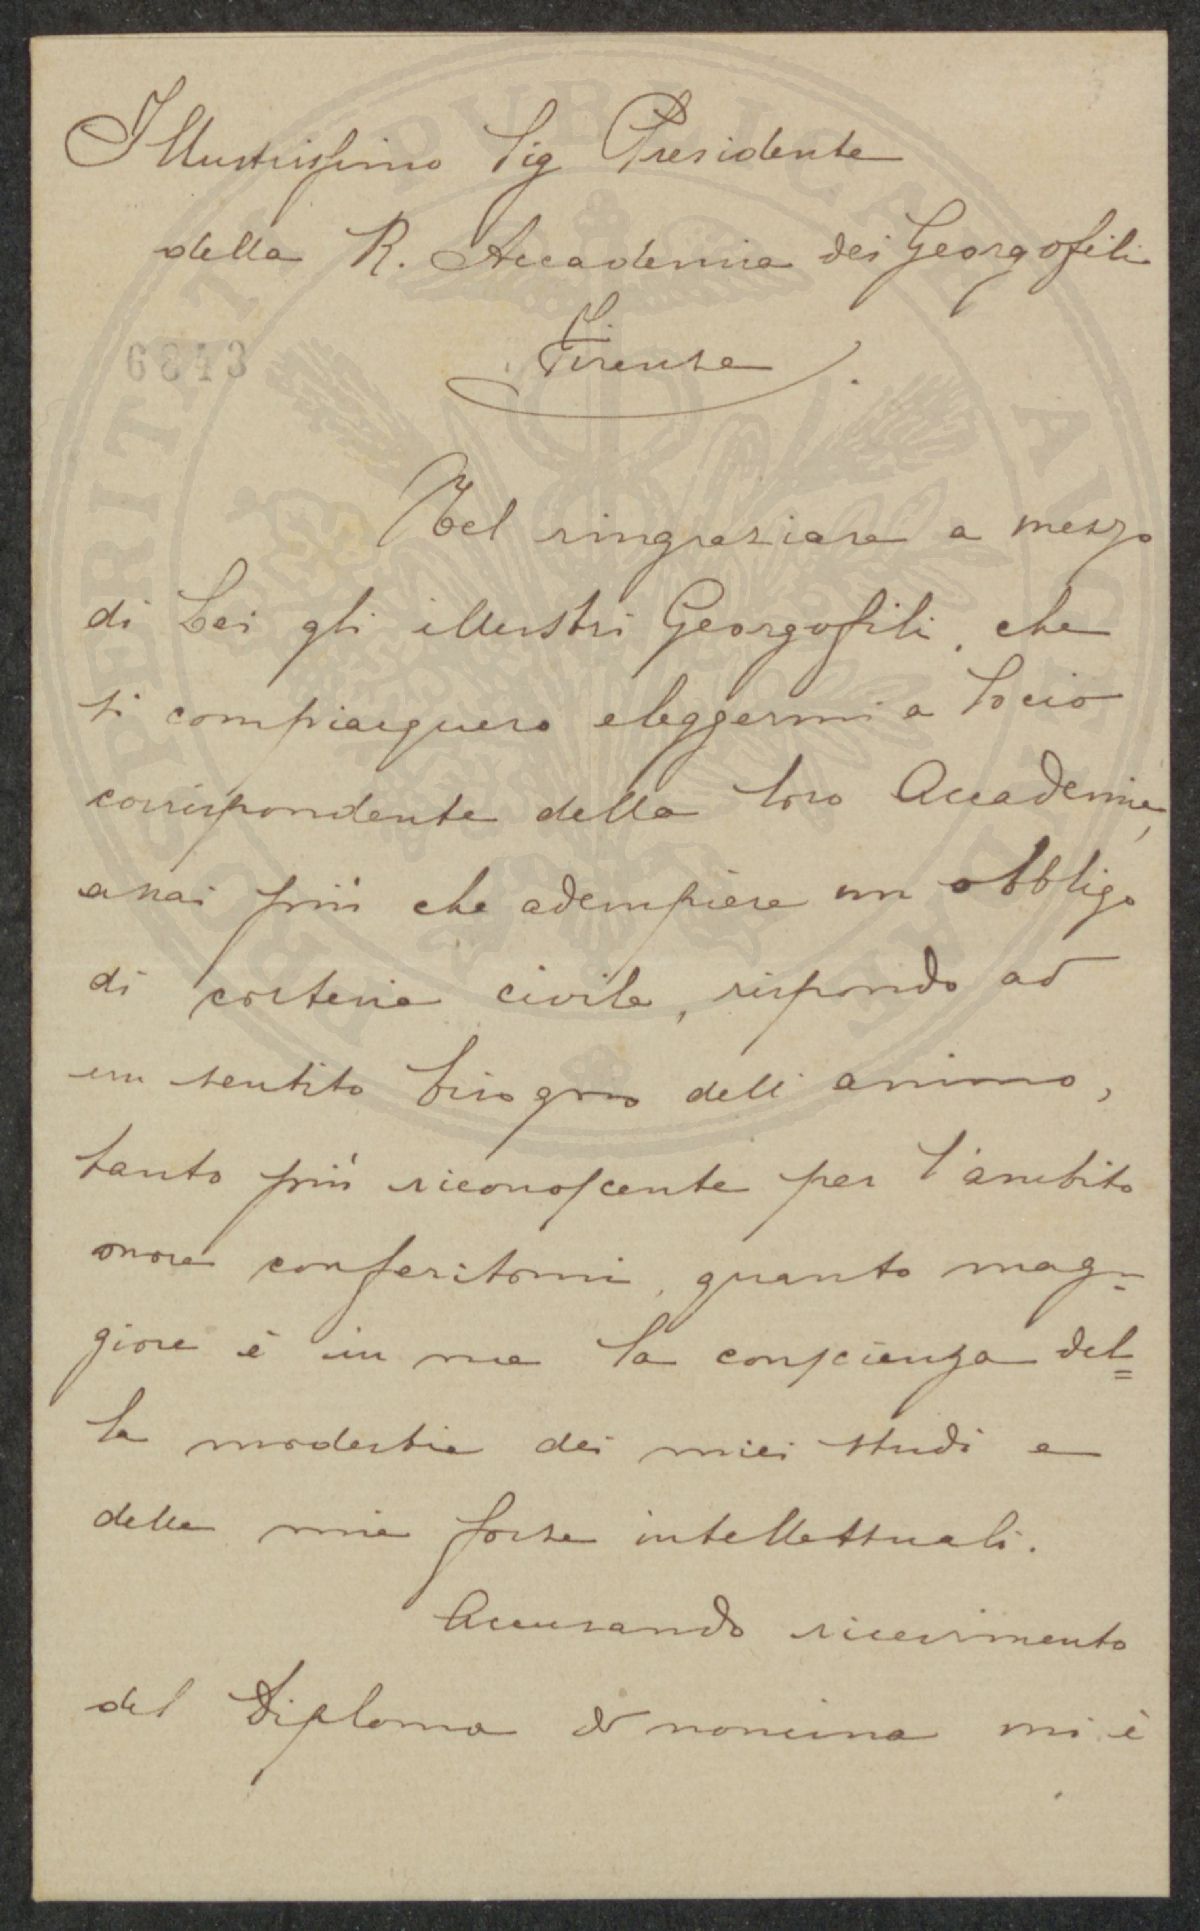 Illustrissimo Sig Presidente
della R. Accademia dei Georgofili
Firenze.
6843
Nel ringraziare a mezzo
di Lei gli illustri Georgofili, che
si compiacquero eleggermi a Socio
corrispondente della loro Accademia,
assai più che adempiere un obbligo
di cortesia civile, rispondo ad
un sentito bisogno dell'animo,
tanto più riconoscente per l'ambito
onore conferitomi, quanto mag=
giore è in me la conscienza del=
la modestia dei miei studi e
delle mie forze intellettuali.
Accusando ricevimento
del Diploma di nomina mi è
PROSPERITATI PUBLICAE AUGENDAE